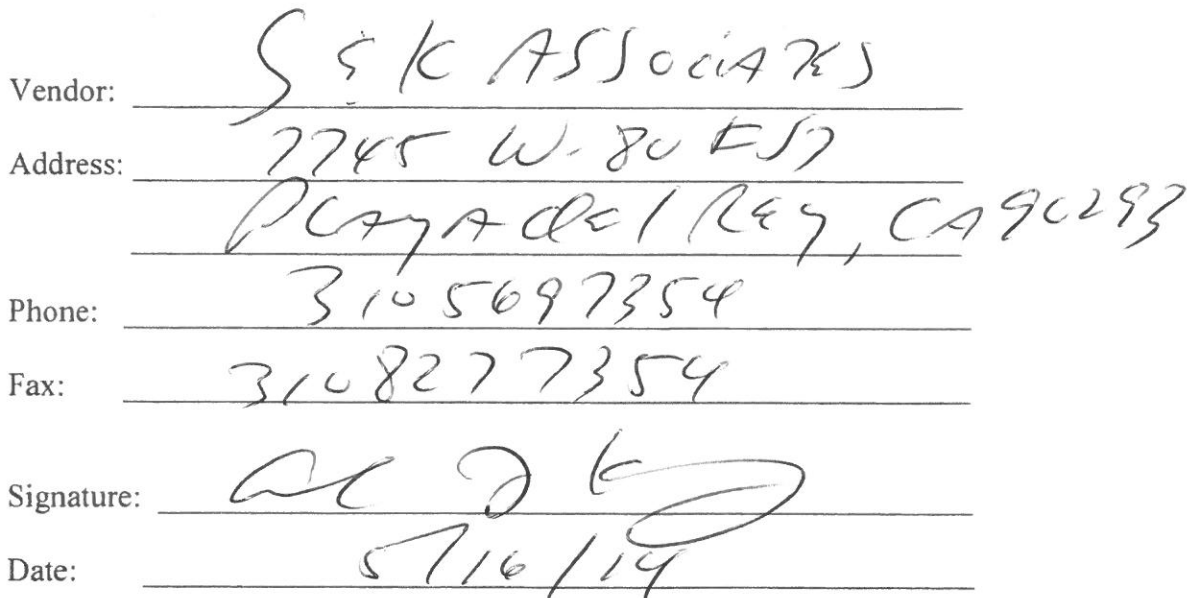 Vendor: S & K ASSociATES
Address: 7745 W. 80th ST
PLAyA del Rey, CA 90293
Phone: 3105697354
Fax: 3108277354
Signature:
Date: 5/16/14